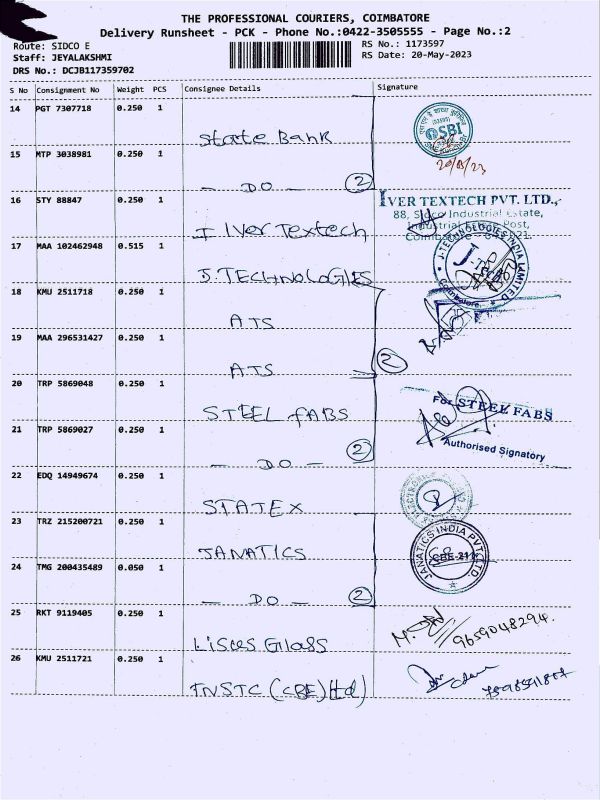 THE PROFESSIONAL COURIERS, COIMBATORE
Delivery Runsheet - PCK - Phone No.:0422-3505555 - Page No.:2
Route: SIDCO E
RS No.: 1173597
Staff: JEYALAKSHMI
RS Date: 20-May-2023
DRS No.: DCJB117359702
S No Consignment No Weight PCS Consignee Details Signature
14 PGT 7307718 0.250 1
State Bank
SBI
20/05/23
15 MTP 3038981 0.250 1
— DO — 2
16 STY 88847 0.250 1
IVER TEXTECH PVT. LTD.,
88, Sidco Industrial Estate,
Industrial Post,
I Iver Textech
17 MAA 102462948 0.515 1
J. TECHNOLOGIES
J-TECHNOLOGIES INDIA LIMITED
Coimbatore
18 KMU 2511718 0.250 1
ATS
19 MAA 296531427 0.250 1
ATS 2
20 TRP 5869048 0.250 1
STEEL FABS
For STEEL FABS
21 TRP 5869027 0.250 1
Authorised Signatory
— DO — 2
22 EDQ 14949674 0.250 1
STATEX
23 TRZ 215200721 0.250 1
JANATICS
JANATICS INDIA PVT LTD
CBE-21
24 TMG 200435489 0.050 1
— DO — 2
25 RKT 9119405 0.250 1
9659048294.
26 KMU 2511721 0.250 1